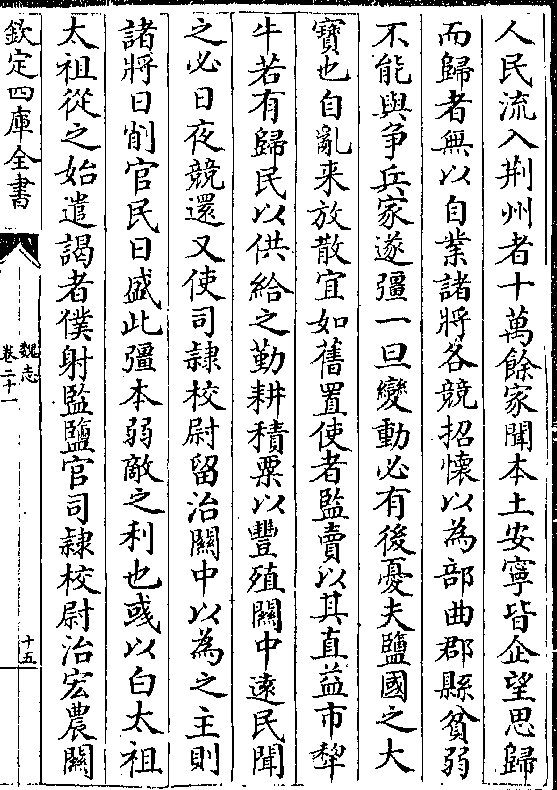 人民流入荆州者十萬餘家聞本土安寧皆企望思歸
而歸者無以自業諸將各競招懷以為部曲郡縣貧弱
不能與争兵家遂彊一旦變動必有後憂夫鹽國之大
寶也自亂来放散宜如舊置使者監賣以其直益市犂
牛若有歸民以供給之勤耕積粟以豐殖關中逺民聞
之必日夜競還又使司隷校尉留治關中以為之主則
諸將日削官民日盛此彊本弱敵之利也彧以白太祖
太祖從之始遣謁者僕射監鹽官司隷校尉治宏農關
欽定四庫全書
魏志
卷二十一
十五